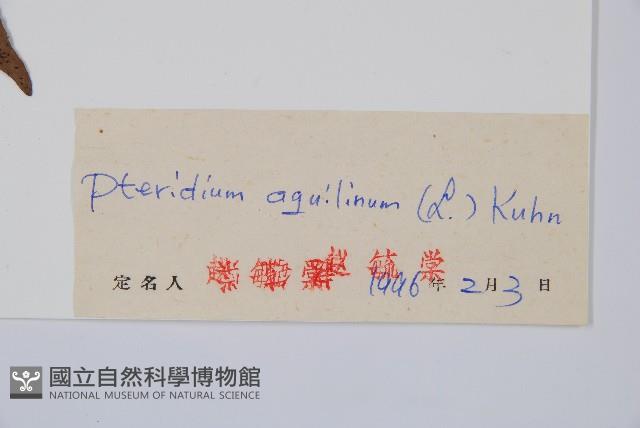 Pteridium aquilinum (L.) Kuhn
定名人 赵毓棠 1996年2月3日
國立自然科學博物館
NATIONAL MUSEUM OF NATURAL SCIENCE